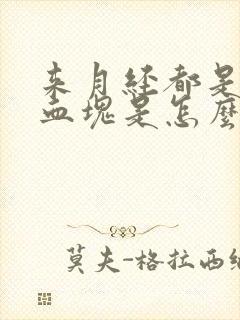 来月经都是
血块是怎麼
莫夫-格拉西纳